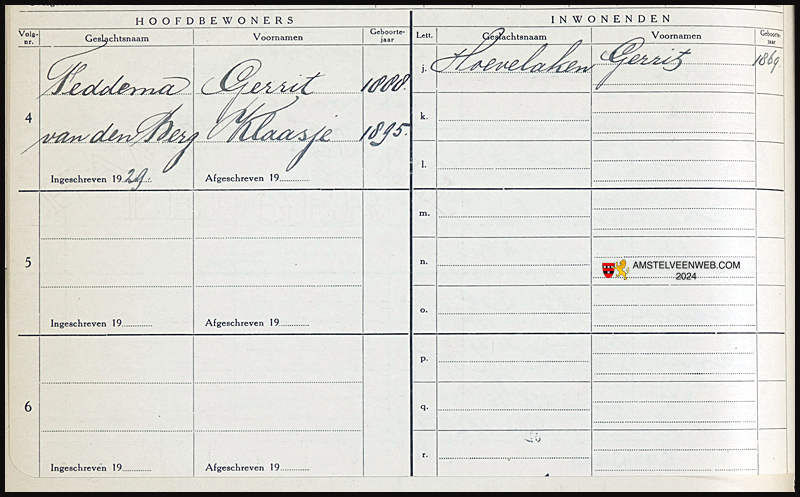 HOOFDBEWONERS
Volg-nr. Geslachtsnaam Voornamen Geboorte-jaar
4 Feddema Gerrit 1888.
van den Berg Klaasje 1895.
Ingeschreven 1929. Afgeschreven 19
5
Ingeschreven 19 Afgeschreven 19
6
Ingeschreven 19 Afgeschreven 19
INWONENDEN
Lett. Geslachtsnaam Voornamen Geboorte-jaar
j. Hoevelaken Gerrit 1869
k.
l.
m.
n.
AMSTELVEENWEB.COM
2024
o.
p.
q.
r.